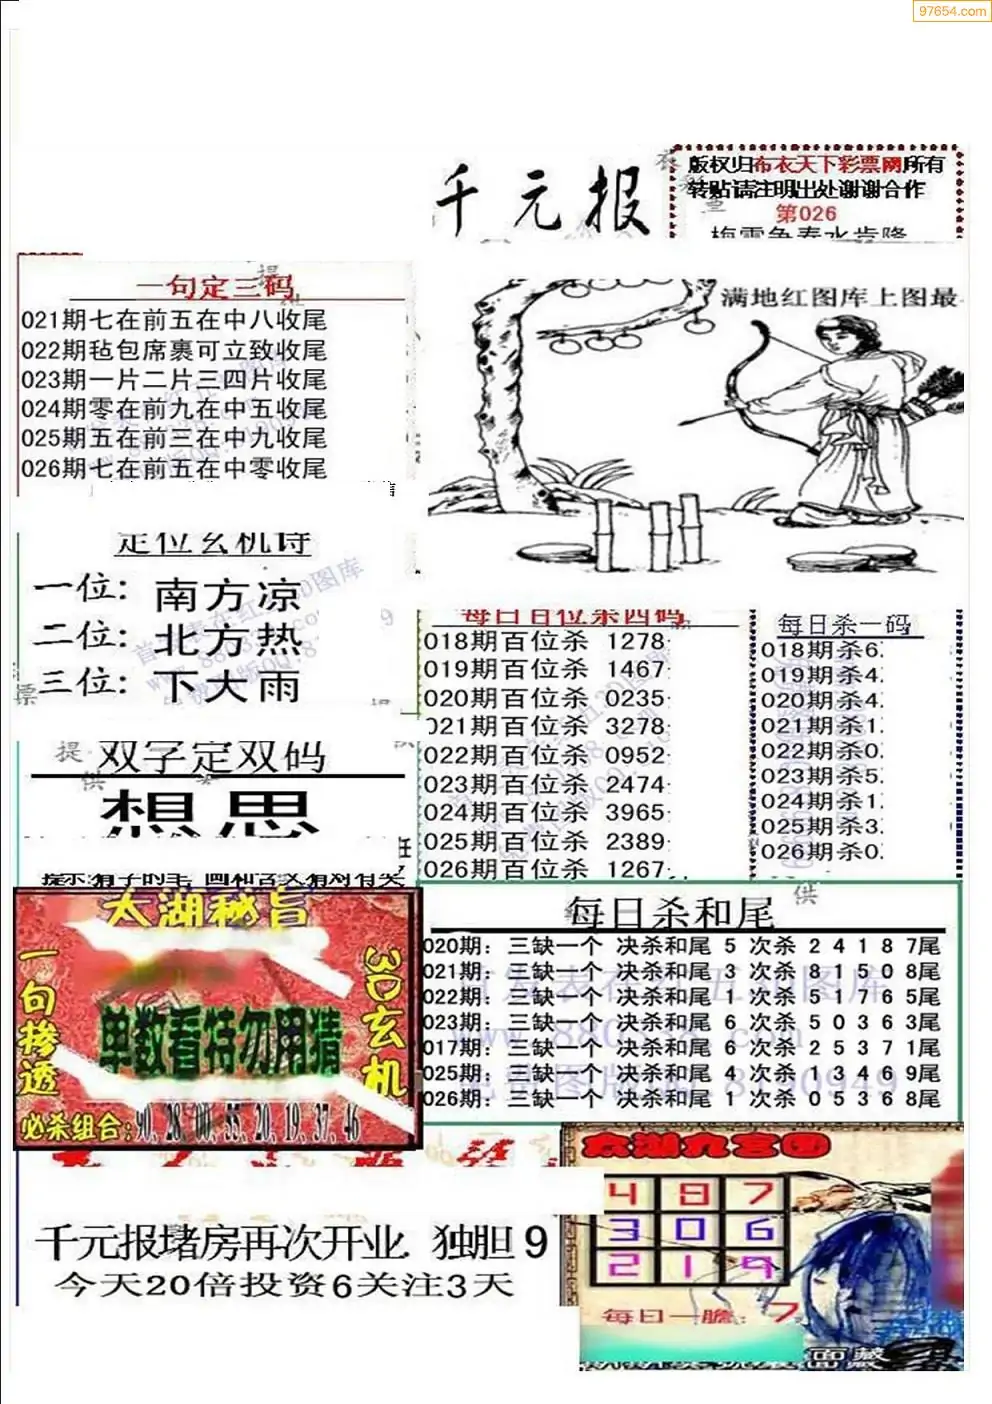 97654.com
千元报
版权归布衣天下彩票网所有
转贴请注明出处谢谢合作
第026
梅雪争春水肯降
满地红图库上图最
一句定三码
021期七在前五在中八收尾
022期毡包席裹可立致收尾
023期一片二片三四片收尾
024期零在前九在中五收尾
025期五在前三在中九收尾
026期七在前五在中零收尾
定位玄机诗
一位: 南方凉
二位: 北方热
三位: 下大雨
每日百位杀四码
018期百位杀 1278
019期百位杀 1467
020期百位杀 0235
021期百位杀 3278
022期百位杀 0952
023期百位杀 2474
024期百位杀 3965
025期百位杀 2389
026期百位杀 1267
每日杀一码
018期杀6
019期杀4
020期杀4
021期杀1
022期杀0
023期杀5
024期杀1
025期杀3
026期杀0
双字定双码
想思
太湖秘旨
一句掺透
3D玄机
单数看特勿用猜
必杀组合:90,28,00,55,20,19,37,46
每日杀和尾
020期: 三缺一个 决杀和尾 5 次杀 2 4 1 8 7尾
021期: 三缺一个 决杀和尾 3 次杀 8 1 5 0 8尾
022期: 三缺一个 决杀和尾 1 次杀 5 1 7 6 5尾
023期: 三缺一个 决杀和尾 6 次杀 5 0 3 6 3尾
017期: 三缺一个 决杀和尾 6 次杀 2 5 3 7 1尾
025期: 三缺一个 决杀和尾 4 次杀 1 3 4 6 9尾
026期: 三缺一个 决杀和尾 1 次杀 0 5 3 6 8尾
太湖九宫图
4 8 7
3 0 6
2 1 9
每日一胆: 7
千元报堵房再次开业. 独胆 9
今天20倍投资6关注3天